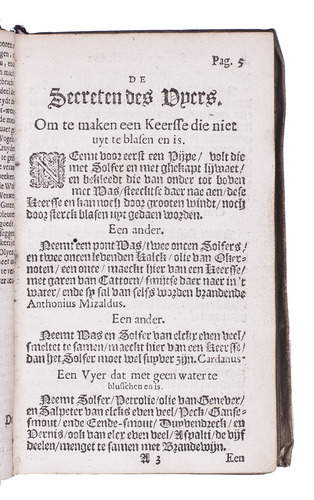 Pag. 5
DE
Secreten des Vyers.
Om te maken een Keersse die niet
uyt te blasen en is.
NEemt voor eerst een Pijpe/ volt die
met Solfer en met gliekapt lijwaet/
en bekleedt die van onder tot boven
met Was/ steeckse daer nae aen/ dese
Keersse en kan noch door grooten windt/ noch
door sterck blasen uyt gedaen worden.
Een ander.
Neemt een pont Was/ twee oncen Solfers/
en twee oncen levenden Kalck/ olie van Oker-
noten/ een once/ maeckt hier van een Keersse/
met garen van Cattoen/ smijtse daer naer in 't
water/ ende sy sal van selfs worden brandende
Anthonius Mizaldus.
Een ander.
Neemt Was en Solfer van elckx even veel/
smeltet te samen/ maeckt hier van een Keersse/
dan het Solfer moet wel suyver zijn. Cardanus
Een Vyer dat met geen water te
blusschen en is.
Neemt Solfer/ Petrolie/ olie van Genever/
en Salpeter van elckx even veel/ Peck/ Ganse-
smout/ ende Eende-smout/ Duyvendreck/ en
Vernis/ ook van elcx even veel/ Aspalti/ de vijf
deelen/ menget te samen met Brandewijn.
A 3
Een